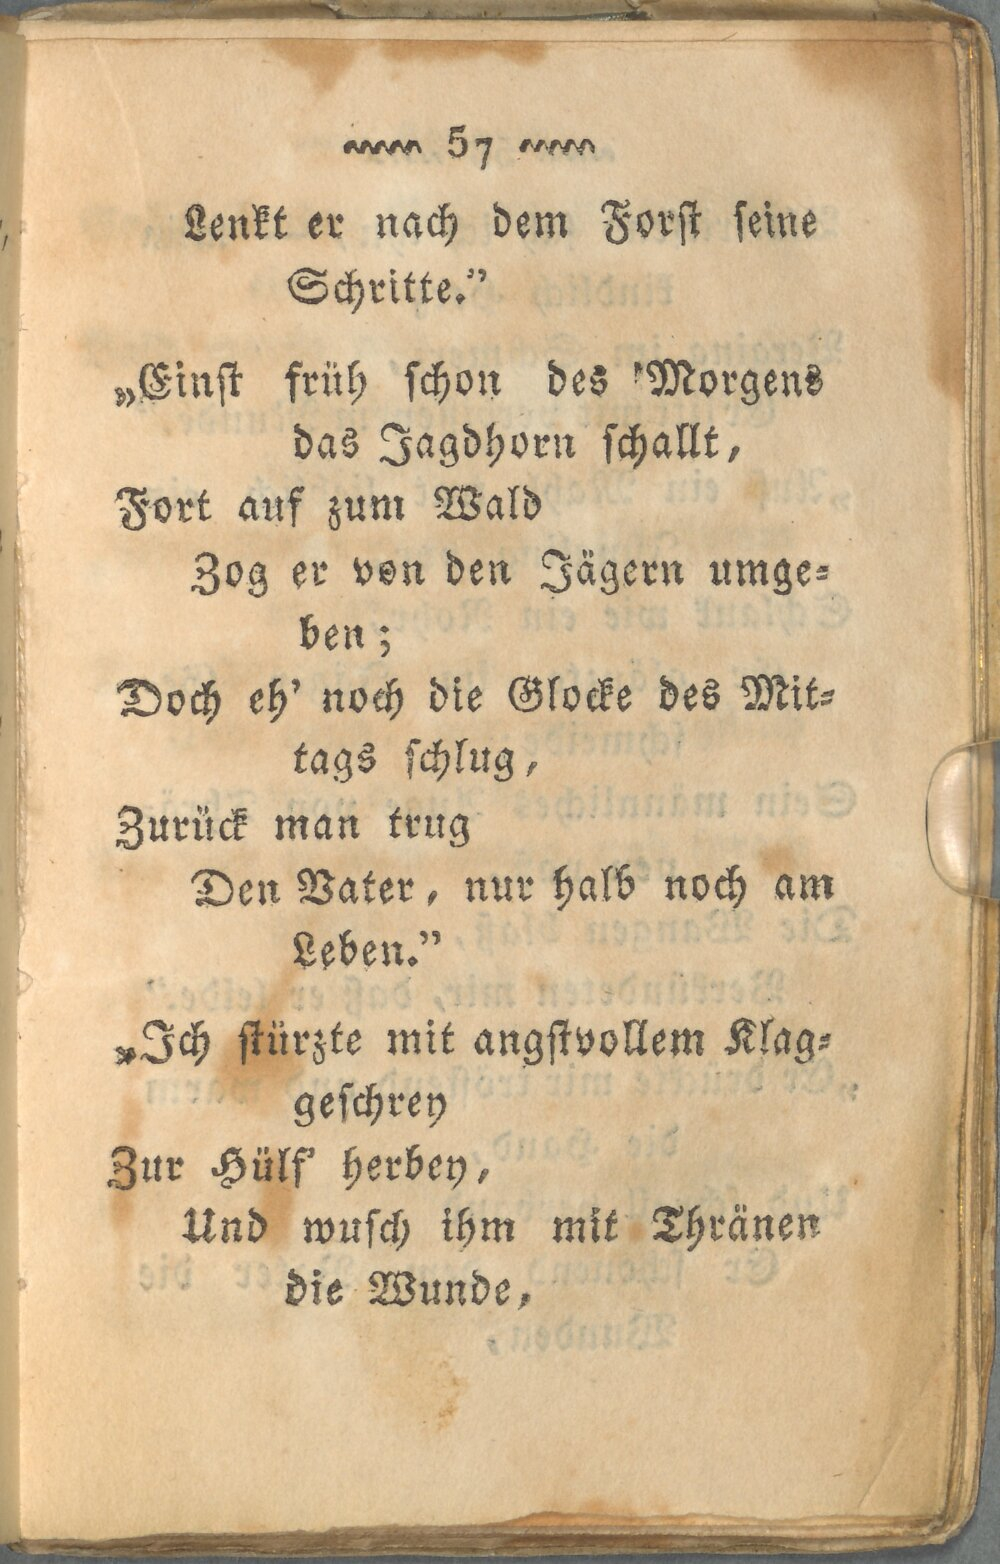 57
Lenkt er nach dem Forst ſeine
Schritte.”
„Einſt früh ſchon des Morgens
das Jagdhorn ſchallt,
Fort auf zum Wald
Zog er von den Jägern umge⸗
ben;
Doch eh’ noch die Glocke des Mit⸗
tags ſchlug,
Zurück man trug
Den Vater, nur halb noch am
Leben.”
„Ich ſtürzte mit angſtvollem Klag⸗
geſchrey
Zur Hülf’ herbey,
Und wuſch ihm mit Thränen
die Wunde,